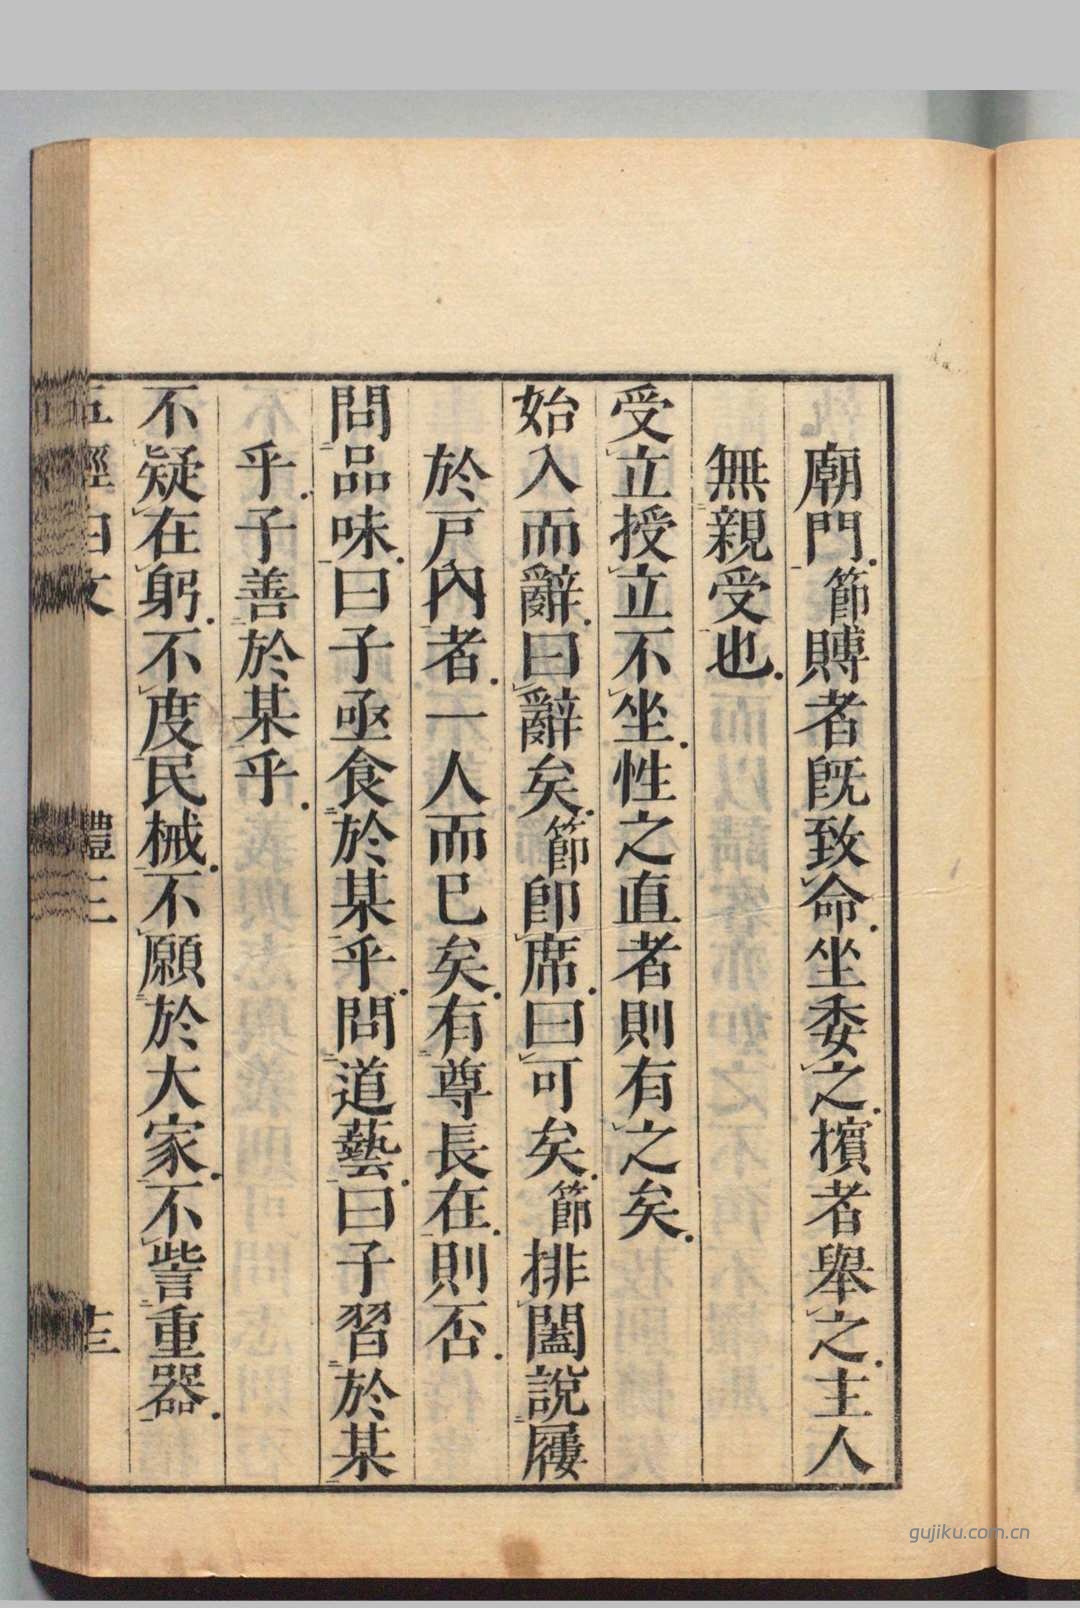 廟門節賻者既致命坐委之擯者舉之主人
無親受也
受立授立不坐性之直者則有之矣
始入而辭曰辭矣節卽席曰可矣節排闔說屨
於戶內者一人而已矣有尊長在則否
問品味曰子亟食於某乎問道藝曰子習於某
乎子善於某乎
不疑在躬不度民械不願於大家不訾重器
五經白文 禮三 十三
gujiku.com.cn